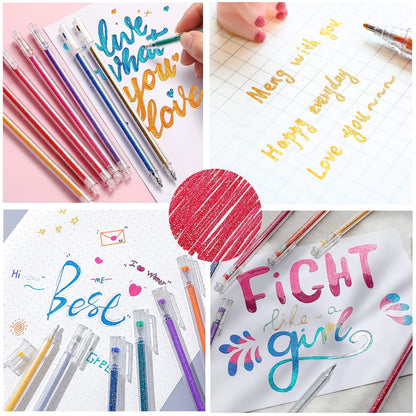 live
what
you
love
Meng with you
Happy everyday
Love you~~~
Hi
me
Best
FiGHT
like a
girl